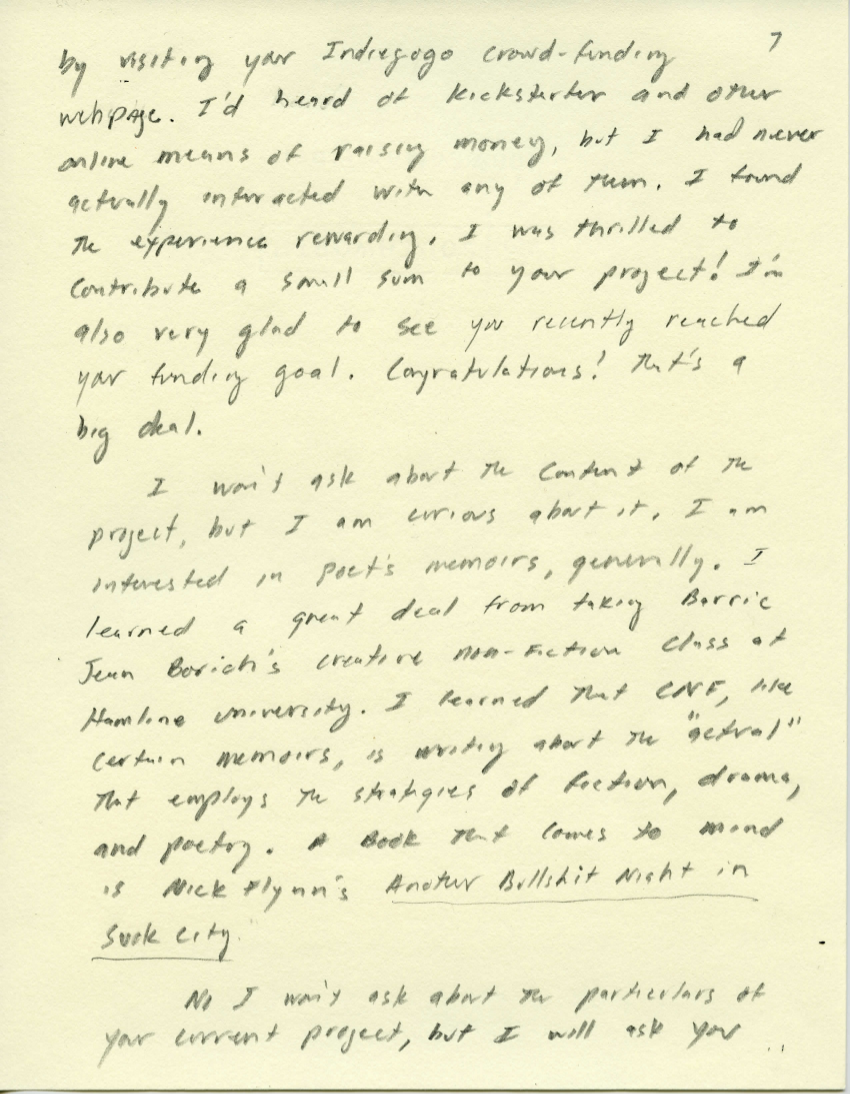 7
by visiting your Indiegogo crowd-funding
webpage. I'd heard of Kickstarter and other
online means of raising money, but I had never
actually interacted with any of them. I found
the experience rewarding. I was thrilled to
contribute a small sum to your project! I'm
also very glad to see you recently reached
your funding goal. Congratulations! That's a
big deal.
I won't ask about the content of the
project, but I am curious about it. I am
interested in poet's memoirs, generally. I
learned a great deal from taking Barrie
Jean Borich's creative non-fiction class at
Hamline University. I learned that CNF, like
certain memoirs, is writing about the "actual"
that employs the strategies of fiction, drama,
and poetry. A book that comes to mind
is Nick Flynn's Another Bullshit Night in
Suck City.
No I won't ask about the particulars of
your current project, but I will ask you